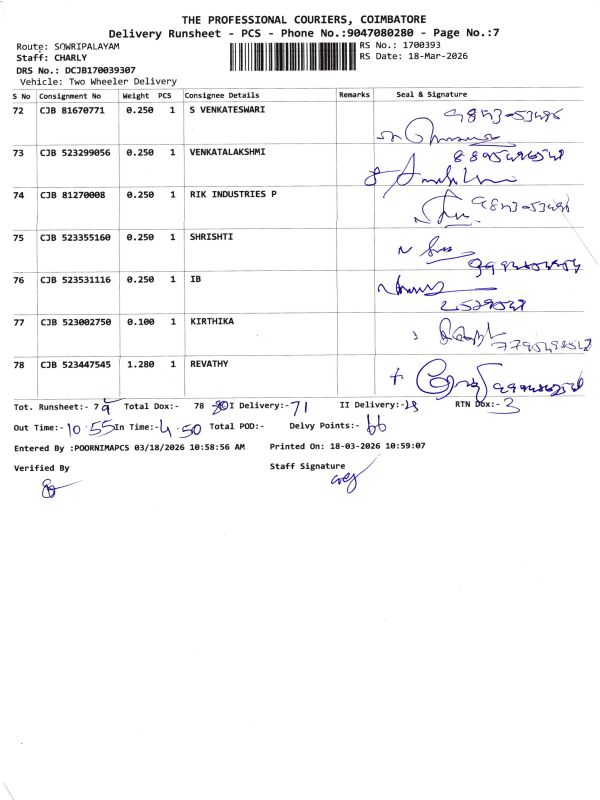 THE PROFESSIONAL COURIERS, COIMBATORE
Delivery Runsheet - PCS - Phone No.:9047080280 - Page No.:7
Route: SOWRIPALAYAM
RS No.: 1700393
Staff: CHARLY
RS Date: 18-Mar-2026
DRS No.: DCJB170039307
Vehicle: Two Wheeler Delivery
S No Consignment No Weight PCS Consignee Details Remarks Seal & Signature
72 CJB 81670771 0.250 1 S VENKATESWARI
73 CJB 523299056 0.250 1 VENKATALAKSHMI
74 CJB 81270008 0.250 1 RIK INDUSTRIES P
75 CJB 523355160 0.250 1 SHRISHTI
76 CJB 523531116 0.250 1 IB
77 CJB 523002750 0.100 1 KIRTHIKA
78 CJB 523447545 1.280 1 REVATHY
Tot. Runsheet:- 7 Total Dox:- 78 I Delivery:- 71 II Delivery:- RTN Dox:- 3
Out Time:- 10.55 In Time:- 4.50 Total POD:- Delvy Points:- 66
Entered By :POORNIMAPCS 03/18/2026 10:58:56 AM Printed On: 18-03-2026 10:59:07
Verified By Staff Signature